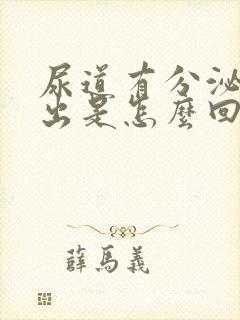 尿道有分泌
出是怎麼回
薛馬義